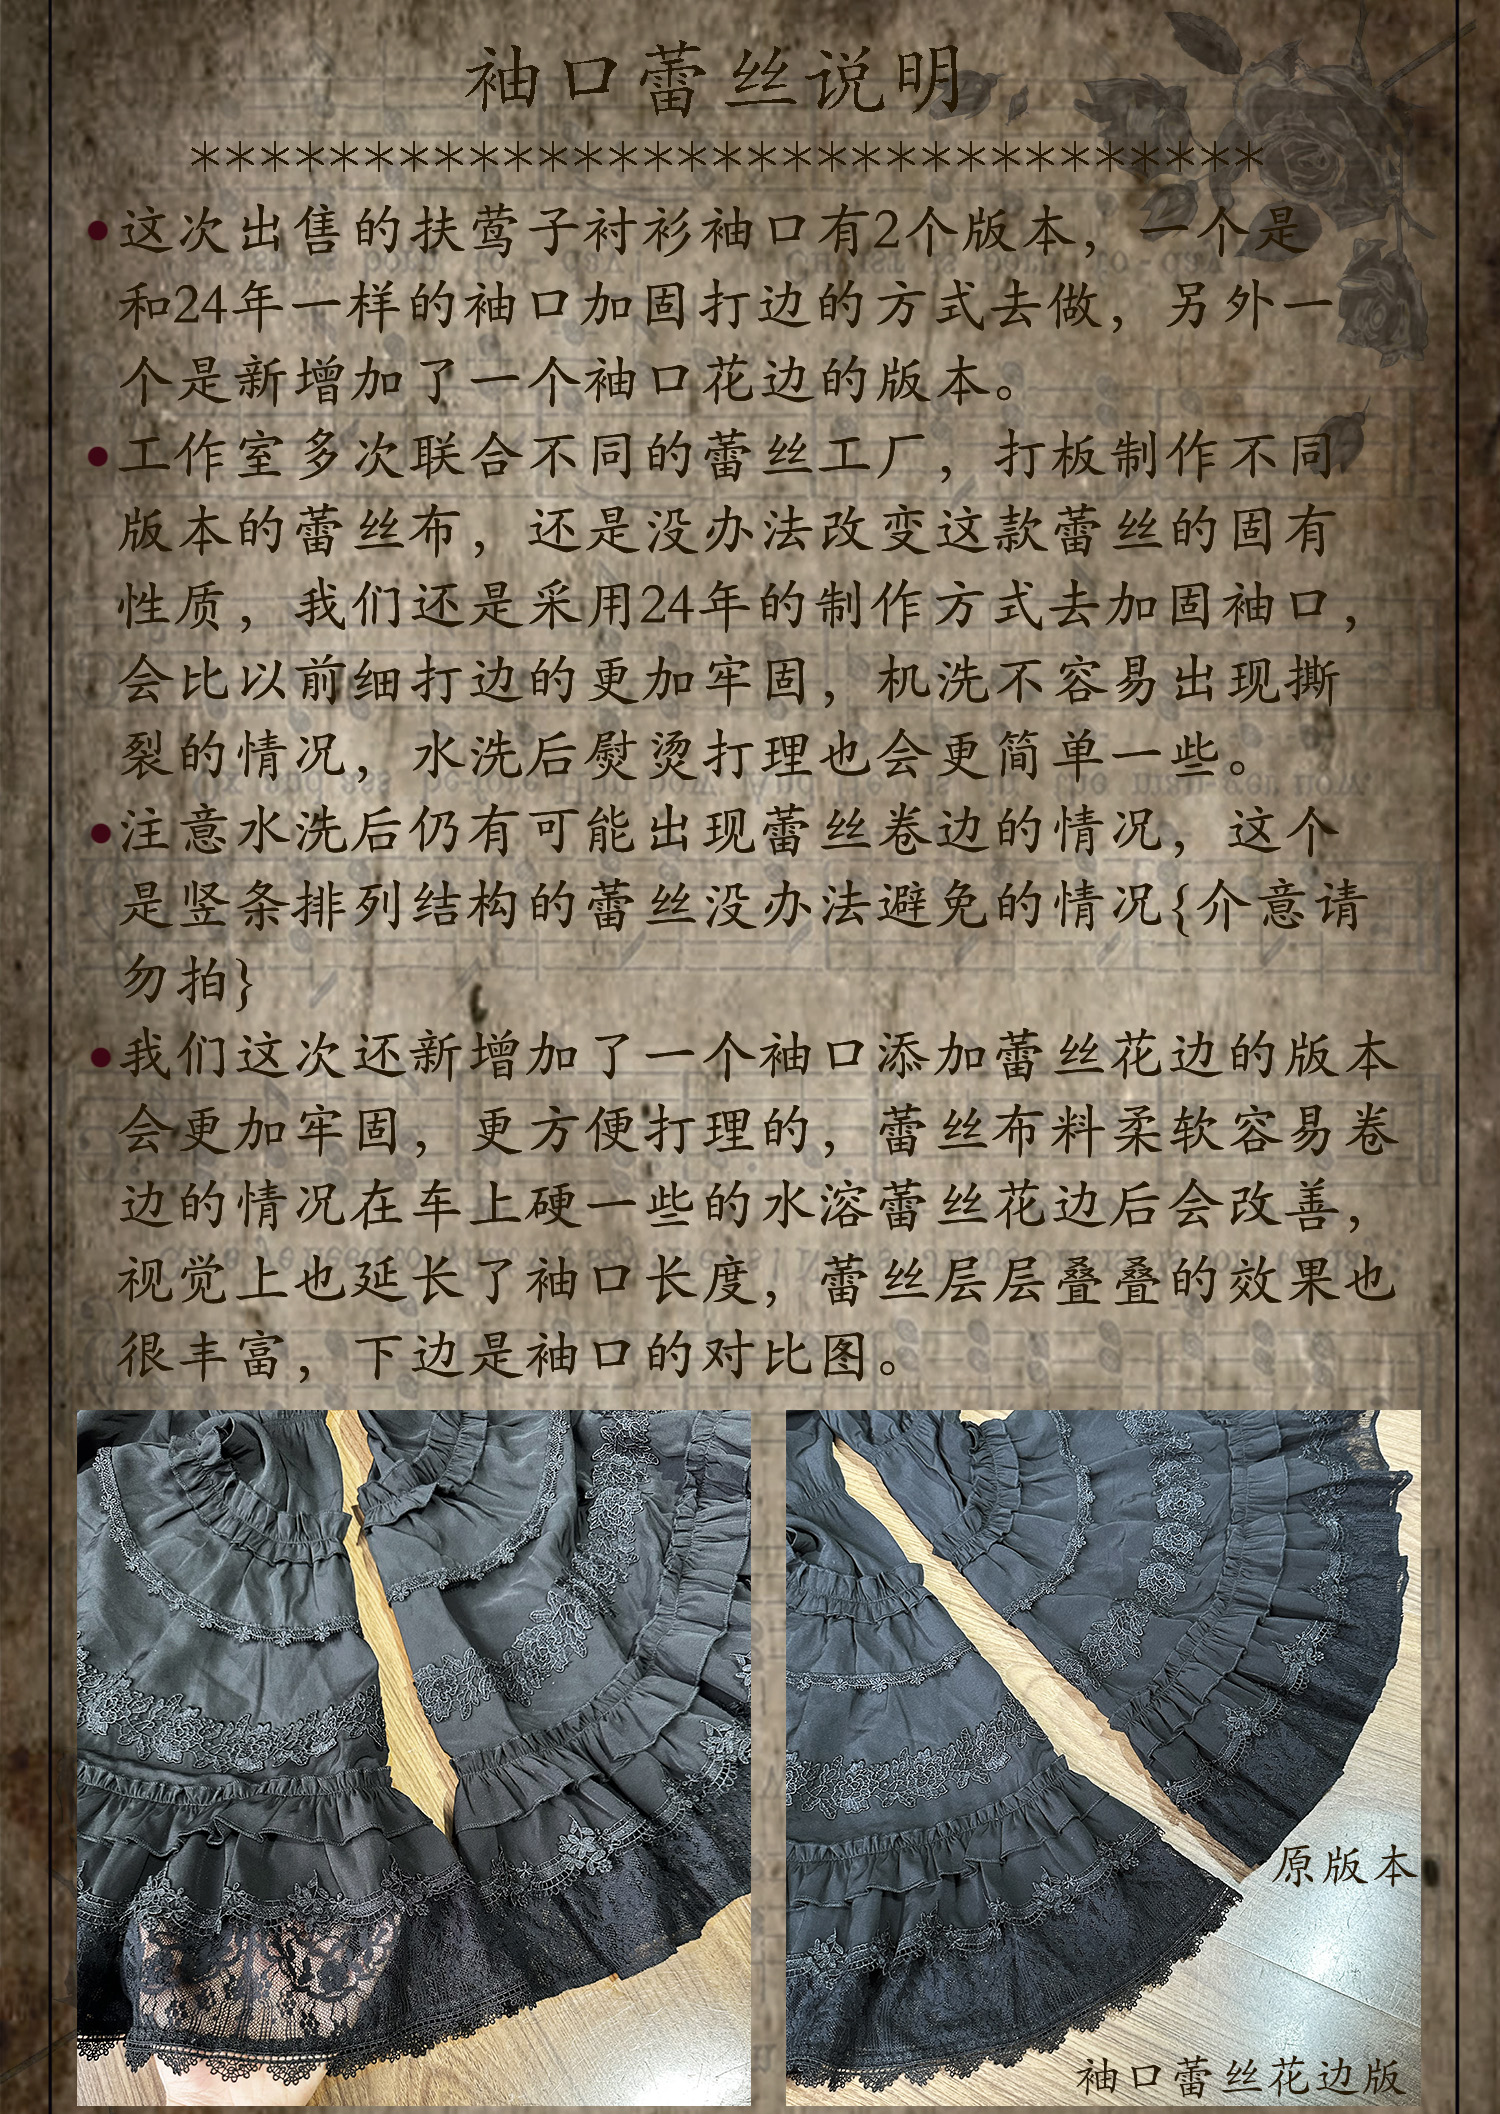 袖口蕾丝说明
*******************************
•这次出售的扶莺子衬衫袖口有2个版本，一个是
和24年一样的袖口加固打边的方式去做，另外一
个是新增加了一个袖口花边的版本。
•工作室多次联合不同的蕾丝工厂，打板制作不同
版本的蕾丝布，还是没办法改变这款蕾丝的固有
性质，我们还是采用24年的制作方式去加固袖口，
会比以前细打边的更加牢固，机洗不容易出现撕
裂的情况，水洗后熨烫打理也会更简单一些。
•注意水洗后仍有可能出现蕾丝卷边的情况，这个
是竖条排列结构的蕾丝没办法避免的情况{介意请
勿拍}
•我们这次还新增加了一个袖口添加蕾丝花边的版本
会更加牢固，更方便打理的，蕾丝布料柔软容易卷
边的情况在车上硬一些的水溶蕾丝花边后会改善，
视觉上也延长了袖口长度，蕾丝层层叠叠的效果也
很丰富，下边是袖口的对比图。
原版本
袖口蕾丝花边版